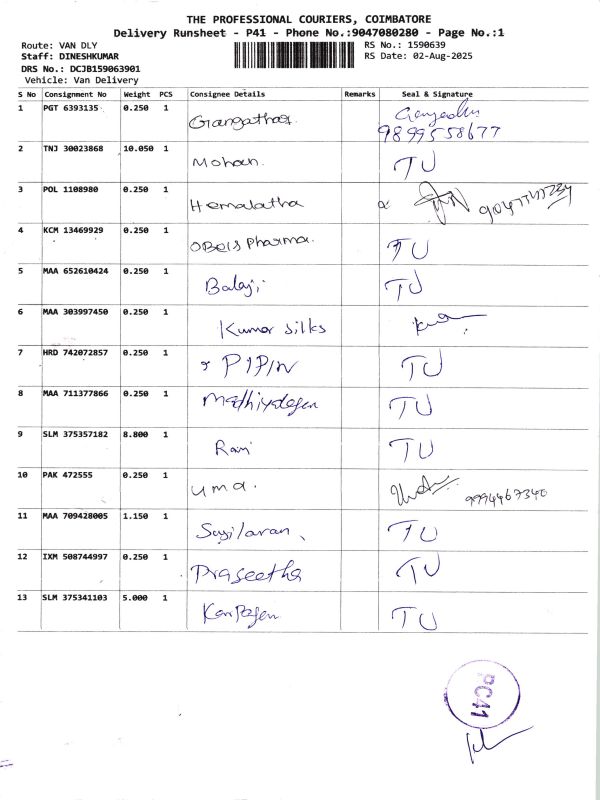 THE PROFESSIONAL COURIERS, COIMBATORE
Delivery Runsheet - P41 - Phone No.:9047080280 - Page No.:1
Route: VAN DLY RS No.: 1590639
Staff: DINESHKUMAR RS Date: 02-Aug-2025
DRS No.: DCJB159063901
Vehicle: Van Delivery
S No Consignment No Weight PCS Consignee Details Remarks Seal & Signature
1 PGT 6393135 0.250 1 Gangathar
9899558677
2 TNJ 30023868 10.050 1 Mohan. TU
3 POL 1108980 0.250 1 Hemalatha
4 KCM 13469929 0.250 1 OBels pharma. TU
5 MAA 652610424 0.250 1 Balaji TU
6 MAA 303997450 0.250 1 Kumar silks
7 HRD 742072857 0.250 1 PIPIN TU
8 MAA 711377866 0.250 1 Mathiyalagan TU
9 SLM 375357182 8.800 1 Ravi TU
10 PAK 472555 0.250 1 uma. 9994467340
11 MAA 709428005 1.150 1 TU
12 IXM 508744997 0.250 1 Praseetha TU
13 SLM 375341103 5.000 1 TU
PC41